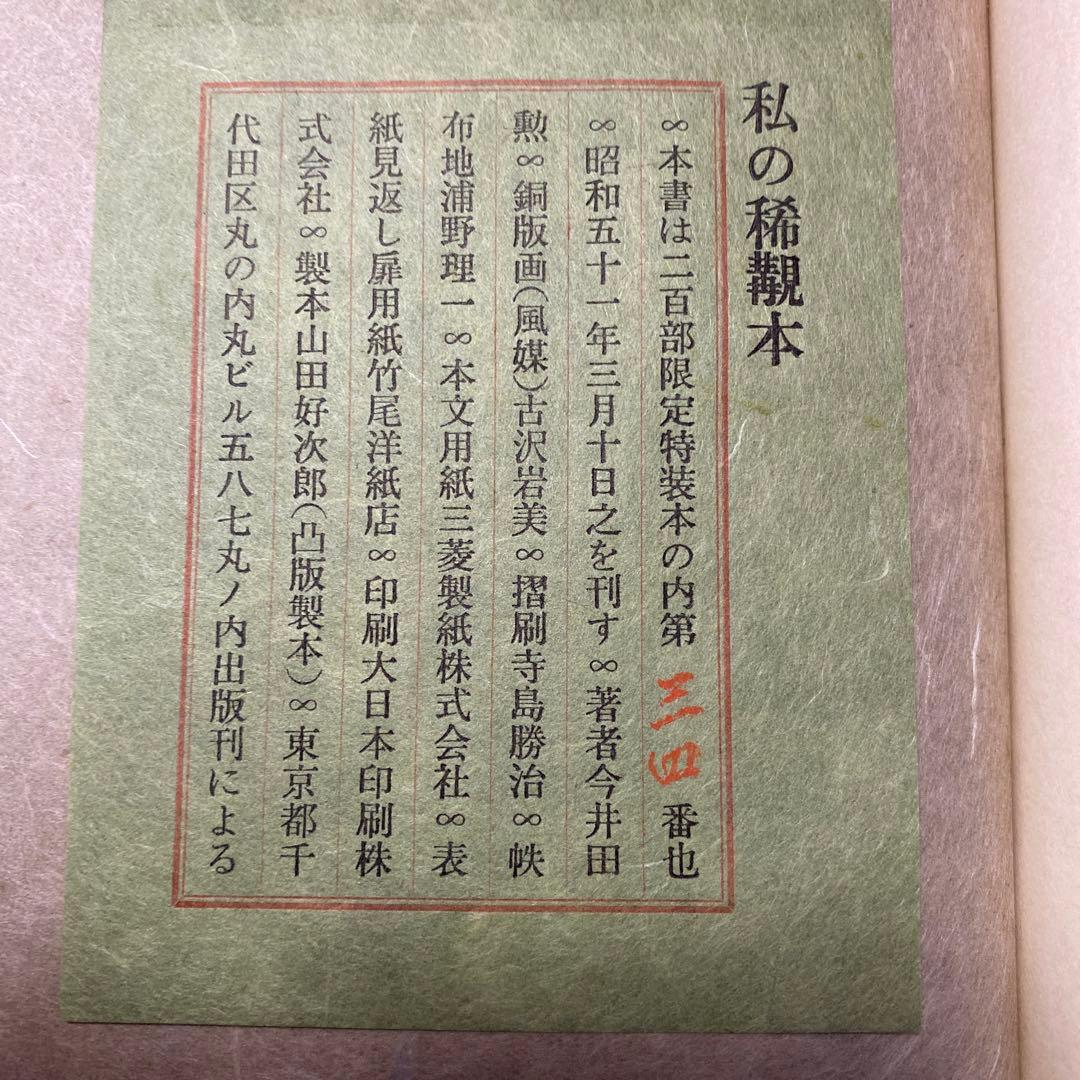 私の稀覯本
∞本書は二百部限定特装本の内第三四番也
∞昭和五十一年三月十日之を刊す∞著者今井田
勲∞銅版画(風媒)古沢岩美∞摺刷寺島勝治∞帙
布地浦野理一∞本文用紙三菱製紙株式会社∞表
紙見返し扉用紙竹尾洋紙店∞印刷大日本印刷株
式会社∞製本山田好次郎(凸版製本)∞東京都千
代田区丸の内丸ビル五八七丸ノ内出版刊による